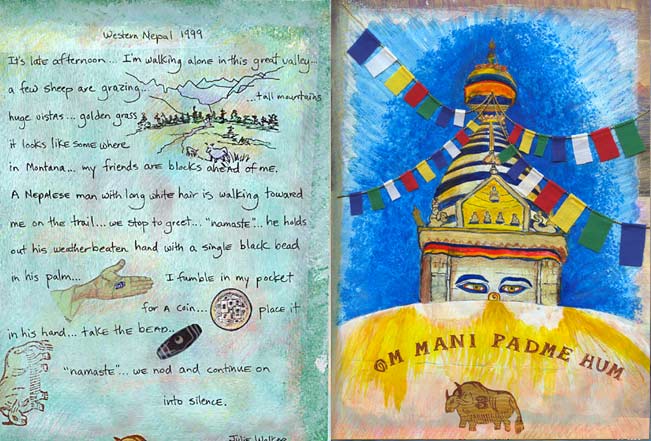 Western Nepal 1999
It's late afternoon... I'm walking alone in this great valley...
a few sheep are grazing...
...tall mountains
huge vistas... golden grass
it looks like some where
in Montana... my friends are blocks ahead of me.
A Nepalese man with long white hair is walking toward
me on the trail... we stop to greet... "namaste"... he holds
out his weatherbeaten hand with a single black bead
in his palm... I fumble in my pocket
for a coin... place it
in his hand... take the bead..
"namaste"... we nod and continue on
into silence.
OM MANI PADME HUM